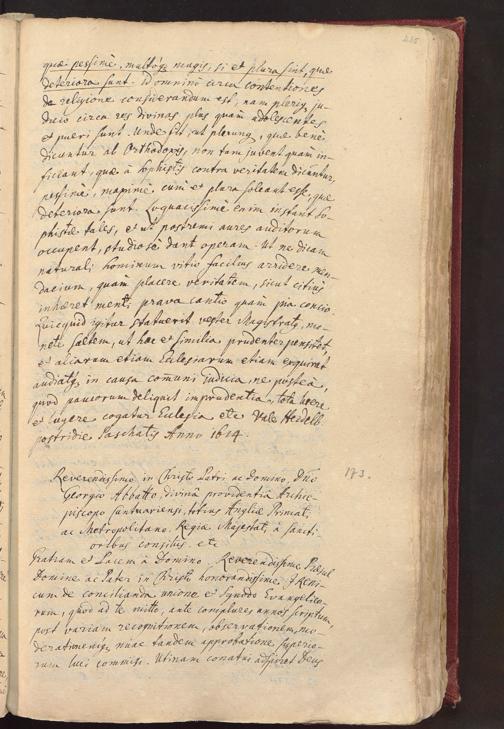 225
quæ pessimè, multóq; magis, si et plura sint, quæ
deteriora sunt. Id omninò circa contentiones
de religione considerandum est, nam pleriq; ju-
dicio circa res divinas plus quàm adolescentes
et pueri sunt. Unde fit, ut plerunq;, quæ benè
dicuntur ab Orthodoxis, non tam juvent quàm in-
ficiant, quæ à Sophistis contra veritatem dicuntur,
pessimè, maximè, cùm et plura soleant esse, quæ
deteriora sunt. Loquacissimè enim instant So-
phistæ tales, et ut postremi aures auditorum
occupent, studiosè dant operam. Ut ne dicam
naturali hominum vitio facilius arridere men-
dacium, quam placere veritatem, sicut citius
inhæret menti prava cantio quàm pia concio.
Quicquid igitur statuerit vester Magistratus, mo-
nete saltem, ut hæc et similia prudenter pensitet,
et aliarum etiam Ecclesiarum etiam exquirat
audiatq; in causa communi judicia, ne postea,
quod paucorum deliquit imprudentia, tota luere
et lugere cogatur Ecclesia etc. Vale Heidelb.
postridie Paschatis Anno 1614.
173.
Reverendissimo in Christo Patri ac Domino, Dno
Georgio Abbatto, divinâ providentiâ Archie-
piscopo Cantuariensi, totius Angliæ Primati,
ac Metropolitano, Regiæ Majestati à sancti-
oribus consiliis. etc
Gratiam et Pacem à Domino. Reverendissime Præsul
Domine ac Pater in Christo honorandissime. Ireni-
cum de concilianda unione et Synodo Evangelico-
rum, quod ad te mitto, ante complures annos scriptum,
post variam recognitionem, observationem, mo-
derationemq; nunc tandem approbatione superio-
rum luci commisi. Utinam conatui adspiret Deus